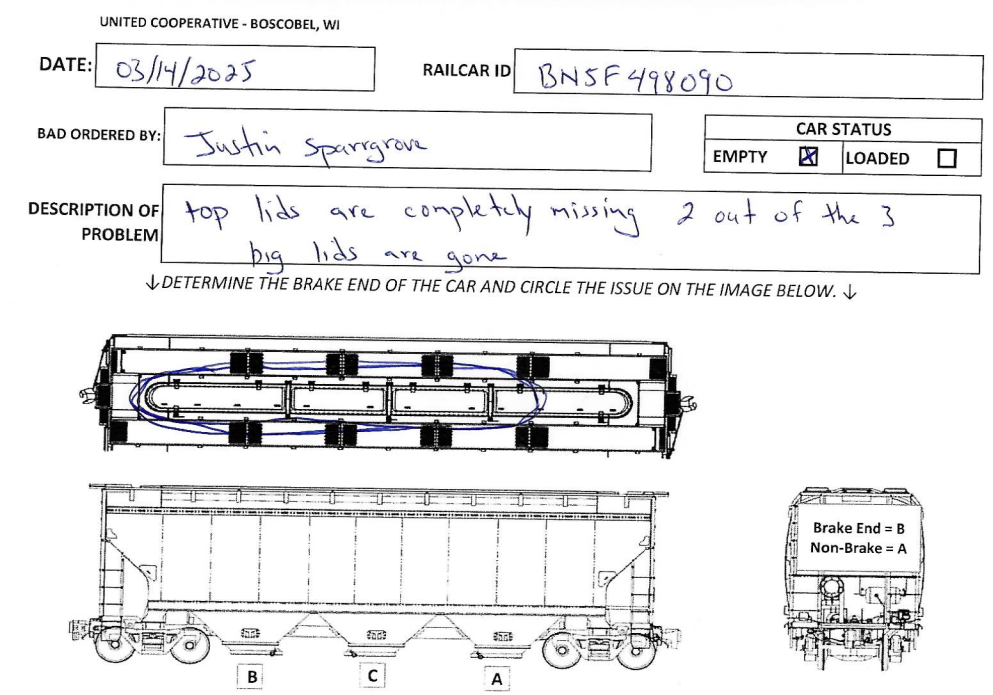 UNITED COOPERATIVE - BOSCOBEL, WI
DATE: 03/14/2025
RAILCAR ID BNSF 498090
BAD ORDERED BY: Justin Sparrgrove
CAR STATUS
EMPTY ☒ LOADED ☐
DESCRIPTION OF PROBLEM
top lids are completely missing 2 out of the 3
big lids are gone
↓ DETERMINE THE BRAKE END OF THE CAR AND CIRCLE THE ISSUE ON THE IMAGE BELOW. ↓
Brake End = B
Non-Brake = A
B C A